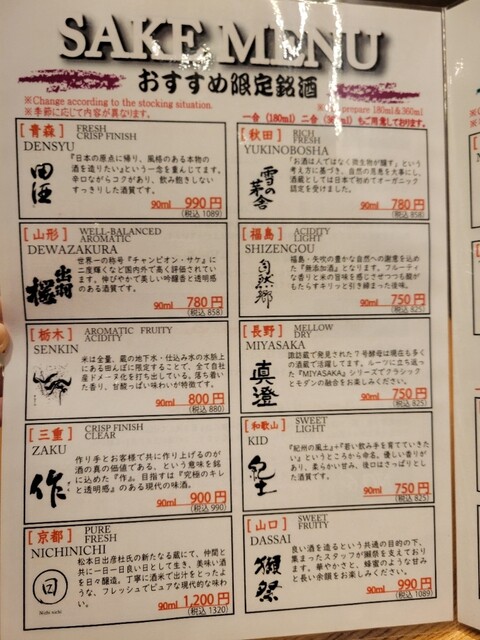 SAKE MENU
おすすめ限定銘酒
※Change according to the stocking situation.
※季節に応じて内容が異なります。
prepare 180ml&360ml
一合（180ml）二合（360ml）もご用意しております。
［青森］ FRESH
CRISP FINISH
DENSYU
田酒
『日本の原点に帰り、風格のある本物の
酒を造りたい』という一念を重んじてます。
辛口ながらコクがあり、飲み飽きしない
すっきりした酒質です。
90ml 990円
(税込 1089)
［山形］ WELL-BALANCED
AROMATIC
DEWAZAKURA
出羽桜
世界一の称号『チャンピオン・サケ』に
二度輝くなど国内外で高く評価されていま
す。伸びやかで美しい吟醸香と透明感
のある酒質です。
90ml 780円
(税込 858)
［栃木］ AROMATIC FRUITY
ACIDITY
SENKIN
米は全量、蔵の地下水・仕込み水の水脈上
にある田んぼに限定することで、全て自社
産ドメーヌ化を打ち出している。落ち着い
た香り、甘酸っぱい味わいが特徴です。
90ml 800円
(税込 880)
［三重］ CRISP FINISH
CLEAR
ZAKU
作
作り手とお客様で共に作り上げるのが
酒の真の価値である、という意味を銘
に込めた『作』。目指すは『究極のキレ
と透明感』のある現代の味酒。
90ml 900円
(税込 990)
［京都］ PURE
FRESH
NICHINICHI
日
Nichi nichi
松本日出彦氏の新たなる蔵にて、仲間と
共に一日一日良い日として生き、美味い酒
を日々醸造。丁寧に酒米で出汁をとったよ
うな、フレッシュでピュアな現代的な味わ
い。
90ml 1,200円
(税込 1320)
［秋田］ RICH
FRESH
YUKINOBOSHA
雪の茅舎
「お酒は人ではなく微生物が醸す」という
考え方に基づき、自然の恩恵を大事にし、
酒蔵としては日本で初めてオーガニック
認定を受けました。
90ml 780円
(税込 858)
［福島］ ACIDITY
LIGHT
SHIZENGOU
自然郷
福島・矢吹の豊かな自然への謝意を込め
た『無添加酒』となります。フルーティ
な香りと米の旨味を感じさせつつも酸が
もたらすキリッと引き締まった後味。
90ml 750円
(税込 825)
［長野］ MELLOW
DRY
MIYASAKA
真澄
諏訪蔵で発見された７号酵母は現在も多く
の酒蔵で活躍してます。ルーツに立ち返っ
た『MIYASAKA』シリーズでクラシック
とモダンの融合をお楽しみください。
90ml 750円
(税込 825)
［和歌山］ SWEET
LIGHT
KID
紀土
『紀州の風土』+『若い飲み手を育てていきた
い』というところから命名。優しい香りが
あり、柔らかい甘み、後口はさっぱりとし
た酒質です。
90ml 750円
(税込 825)
［山口］ SWEET
FRUITY
DASSAI
獺祭
良い酒を造るという共通の目的の下、
集まったスタッフが獺祭を支えており
ます。華やかさと、蜂蜜のような甘み
と長い余韻をお楽しみください。
90ml 990円
(税込 1089)